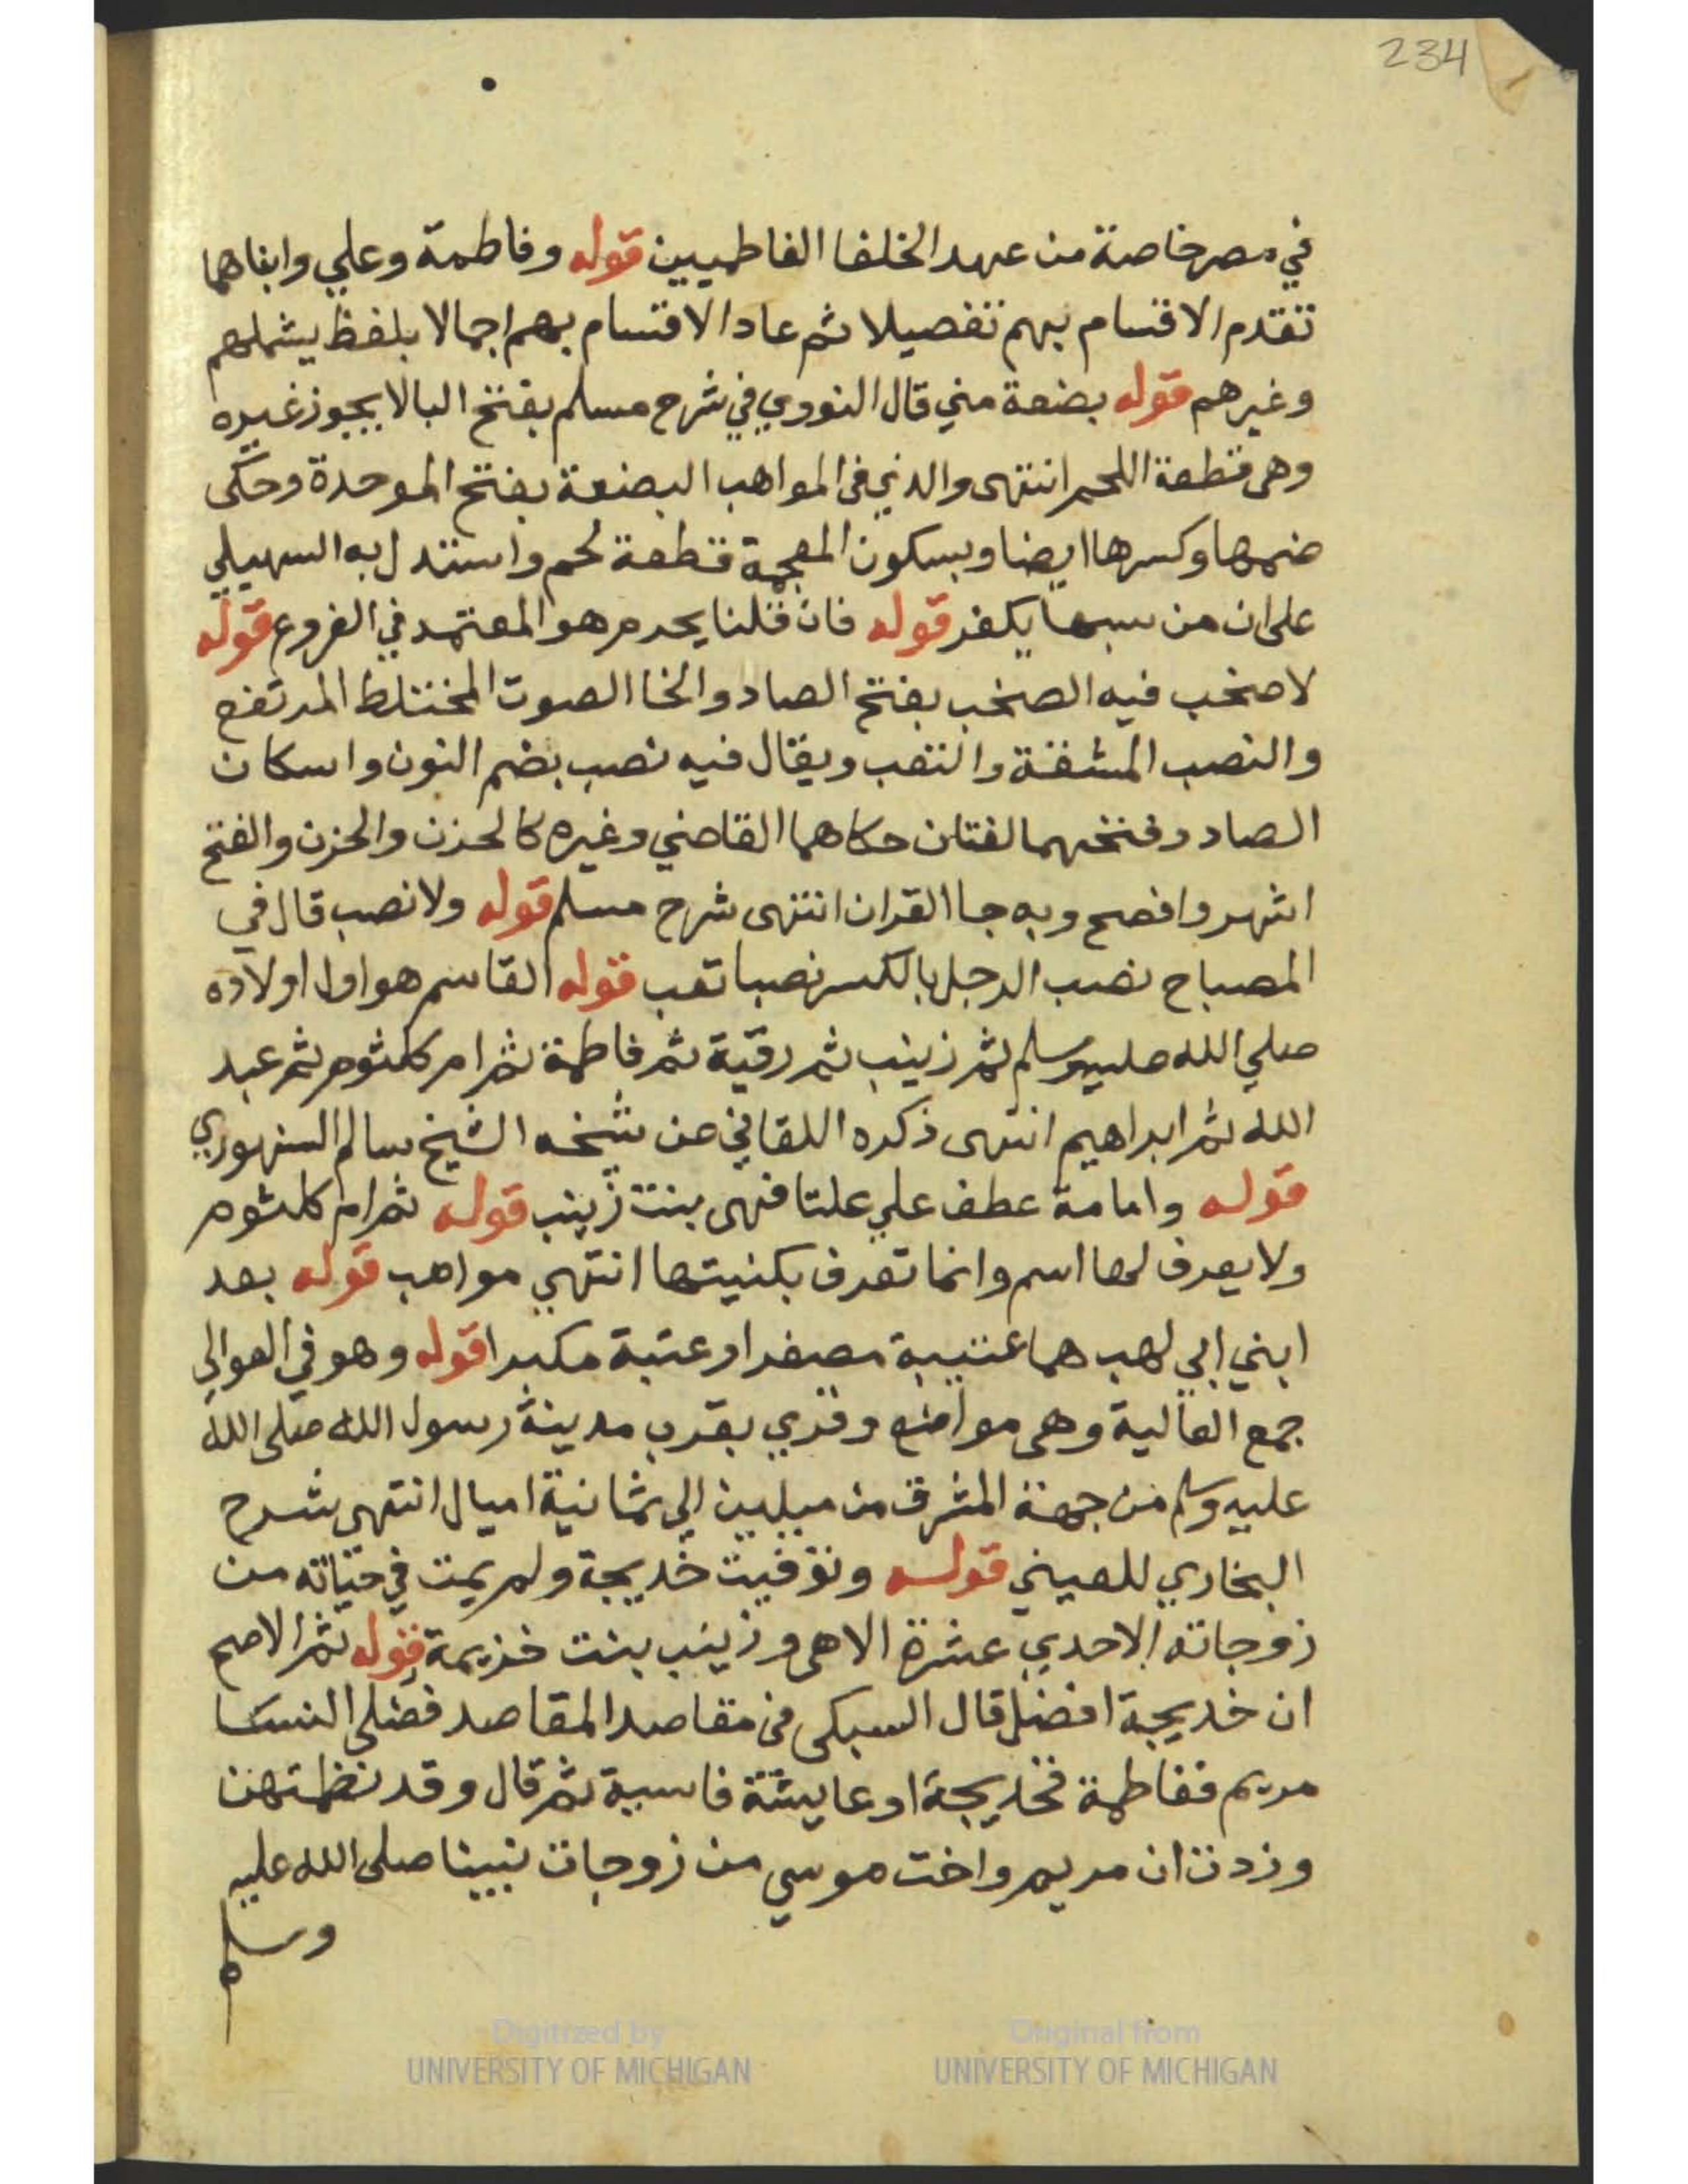 234
في مصر خاصة من عهد الخلفا الفاطميين قوله وفاطمة وعلي وابناهما
تقدم الاقسام بهم تفصيلا ثم عاد الاقسام بهم اجمالا بلفظ يشملهم
وغيرهم قوله بضعة مني قال النووي في شرح مسلم بفتح البا لا يجوز غيره
وهى قطعة اللحم انتهى والذي فى المواهب البضعة بفتح الموحدة وحكى
ضمها وكسرها ايضا وبسكون المعجمة قطعة لحم واستدل به السهيلي
على ان من سبها يكفر قوله فان قلنا يحرم هو المعتمد في الفروع قوله
لا صخب فيه الصخب بفتح الصاد والخا الصوت المختلط المرتفع
والنصب المشقة والتعب ويقال فيه نصب بضم النون واسكان
الصاد وفتحهما لغتان حكاهما القاضي وغيره كالحزن والحزن والفتح
اشهر وافصح وبه جا القران انتهى شرح مسلم قوله ولا نصب قال في
المصباح نصب الرجل بالكسر نصبا تعب قوله القاسم هو اول اولاده
صلي الله عليه وسلم ثم زينب ثم رقية ثم فاطمة ثم ام كلثوم ثم عبد
الله ثم ابراهيم انتهى ذكره اللقاني عن شيخه الشيخ سالم السنهوري
قوله وامامة عطف علي عليا فهى بنت زينب قوله ثم ام كلثوم
ولا يعرف لها اسم وانما تعرف بكنيتها انتهي مواهب قوله بعد
ابني ابي لهب هما عتيبة مصغرا وعتبة مكبرا قوله وهو في العوالي
جمع العالية وهى مواضع وقري بقرب مدينة رسول الله صلى الله
عليه وسلم من جهة المشرق من ميلين الي ثمانية اميال انتهى شرح
البخاري للعيني قوله وتوفيت خديجة ولم يمت في حياته من
زوجاته الاحدي عشرة الا هى وزينب بنت خزيمة قوله ثم الاصح
ان خديجة افضل قال السبكى فى مقاصد المقاصد فضلي النسا
مريم ففاطمة فخديجة او عايشة فاسية ثم قال وقد نظمتهن
وزدت ان مريم واخت موسي من زوجات نبينا صلى الله عليه
وسلم
Digitized by
UNIVERSITY OF MICHIGAN
Original from
UNIVERSITY OF MICHIGAN